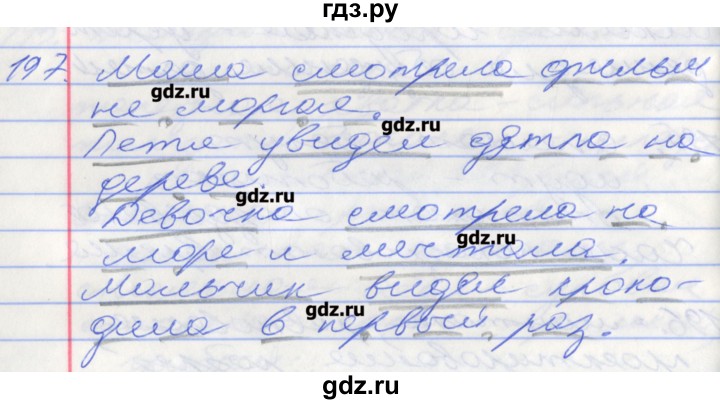 гдз.ру
197. Маша смотрела фильм
не моргая.
gdz.ru
gdz.ru
Петя увидел дятла на
дереве.
gdz.ru
Девочка смотрела на
море и мечтала.
gdz.ru
Мальчик видел кроко-
дила в первый раз.
gdz.ru
gdz.ru